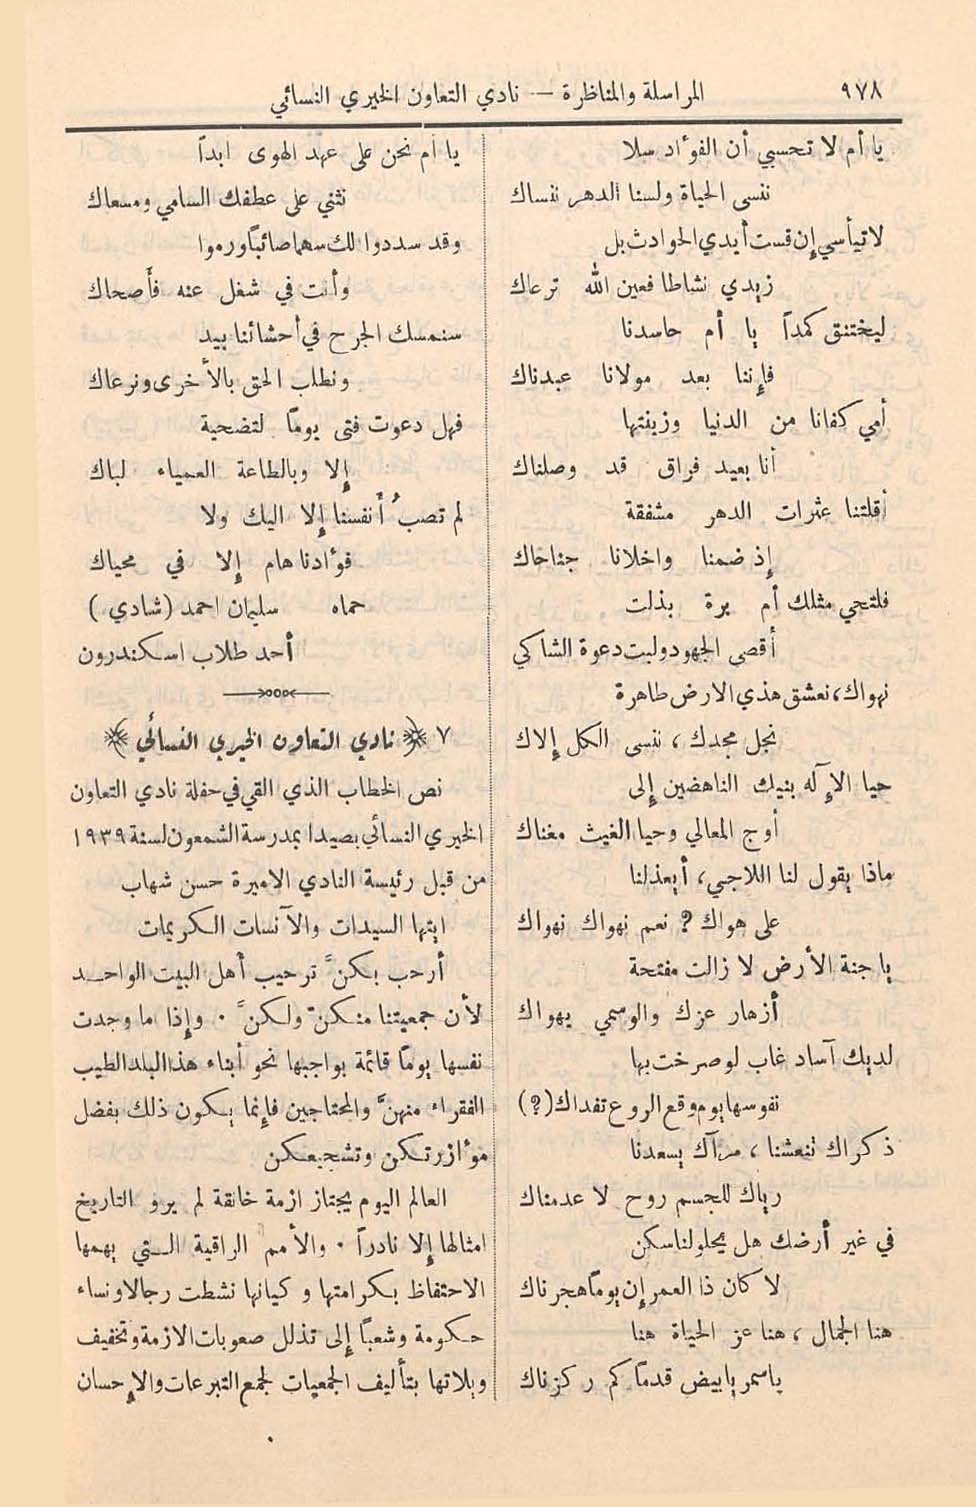 ٩٧٨ المراسلة والمناظرة — نادي التعاون الخيري النسائي
يا أم لا تحسبي أن الفوٴاد سلا
ننسى الحياة ولسنا الدهر ننساك
لا تيأسي إن قست أيدي الحوادث بل
زيدي نشاطا فعين الله ترعاك
ليختنق كمداً يا أم حاسدنا
فإننا بعد مولانا عبدناك
أمي كفانا من الدنيا وزينتها
أنا بعيد فراق قد وصلناك
أقلتنا عثرات الدهر مشفقة
إذ ضمنا واخلانا جناحاك
فلتحي مثلك أم برة بذلت
أقصى الجهود ولبت دعوة الشاكي
نهواك، نعشق هذي الارض طاهرة
نجل مجدك، ننسى الكل إلاك
حيا الإِله بنيك الناهضين إلى
أوج المعالي وحيا الغيث مغناك
ماذا يقول لنا اللاجي، أيعذلنا
على هواك؟ نعم نهواك نهواك
يا جنة الأرض لا زالت مفتحة
أزهار عزك والوسمي يهواك
لديك آساد غاب لو صرخت بها
نفوسها يوم وقع الروع تفداك (؟)
ذكراك تنعشنا، مرآك يسعدنا
رياك للجسم روح لا عدمناك
في غير أرضك هل يحلو لنا سكن
لا كان ذا العمر إن يوماً هجرناك
هنا الجمال، هنا عز الحياة هنا
يا سمر يا بيض قدماً كم ركزناك
يا أم نحن على عهد الهوى ابداً
نثني على عطفك السامي ومسعاك
وقد سددوا لك سهما صائباً ورموا
وأنت في شغل عنه فأصحاك
سنمسك الجرح في أحشائنا بيد
ونطلب الحق بالأخرى ونرعاك
فهل دعوت فتى يوماً لتضحية
إلا وبالطاعة العمياء لباك
لم تصبُ أنفسنا إلا اليك ولا
فوٴادنا هام إلا في محياك
حماه سليمان احمد (شادي)
أحد طلاب اسكندرون
٧ ﴿ نادي التعاون الخيري النسائي ﴾
نص الخطاب الذي القي في حفلة نادي التعاون
الخيري النسائي بصيدا بمدرسة الشمعون لسنة ١٩٣٩
من قبل رئيسة النادي الاميرة حسن شهاب
ايتها السيدات والآنسات الكريمات
أرحب بكنّ ترحيب أهل البيت الواحد
لأن جمعيتنا منكنّ ولكنّ . وإذا ما وجدت
نفسها يوماً قائمة بواجبها نحو أبناء هذا البلد الطيب
الفقراء منهنّ والمحتاجين فإنما يكون ذلك بفضل
موٴازرتكن وتشجيعكن
العالم اليوم يجتاز ازمة خانقة لم يرو التاريخ
امثالها إلا نادراً . والأمم الراقية التي يهمها
الاحتفاظ بكرامتها وكيانها نشطت رجالا ونساء
حكومة وشعباً إلى تذلل صعوبات الازمة وتخفيف
ويلاتها بتأليف الجمعيات لجمع التبرعات والإِحسان